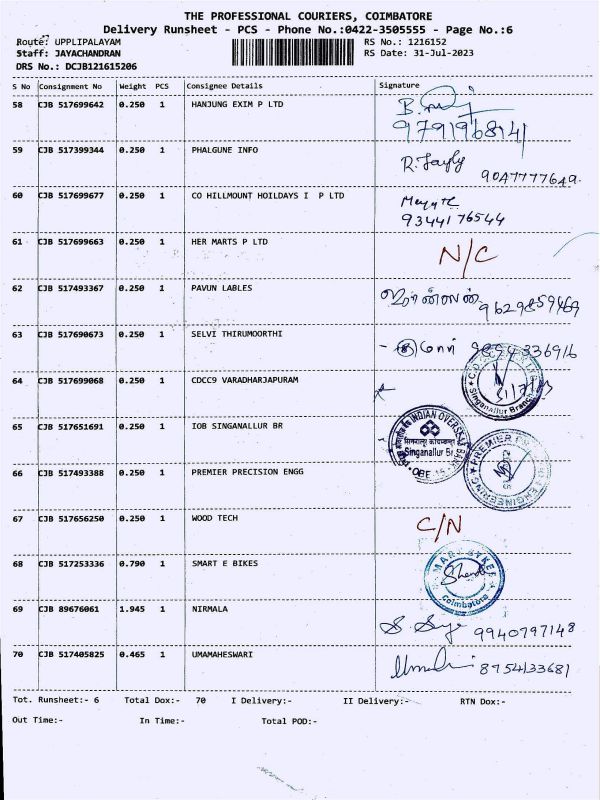 THE PROFESSIONAL COURIERS, COIMBATORE
Delivery Runsheet - PCS - Phone No.:0422-3505555 - Page No.:6
Route: UPPLIPALAYAM RS No.: 1216152
Staff: JAYACHANDRAN RS Date: 31-Jul-2023
DRS No.: DCJB121615206
S No Consignment No Weight PCS Consignee Details Signature
58 CJB 517699642 0.250 1 HANJUNG EXIM P LTD
9791968141
59 CJB 517399344 0.250 1 PHALGUNE INFO
9047777649
60 CJB 517699677 0.250 1 CO HILLMOUNT HOILDAYS I P LTD
9344176544
61 CJB 517699663 0.250 1 HER MARTS P LTD N/C
62 CJB 517493367 0.250 1 PAVUN LABLES
9629859469
63 CJB 517690673 0.250 1 SELVI THIRUMOORTHI
9894336916
64 CJB 517699068 0.250 1 CDCC9 VARADHARJAPURAM
Singanallur Branch
65 CJB 517651691 0.250 1 IOB SINGANALLUR BR
INDIAN OVERSEAS
Singanallur Br
66 CJB 517493388 0.250 1 PREMIER PRECISION ENGG
PREMIER
ENGINEERING
67 CJB 517656250 0.250 1 WOOD TECH C/N
68 CJB 517253336 0.790 1 SMART E BIKES
Coimbatore
69 CJB 89676061 1.945 1 NIRMALA
9940797148
70 CJB 517405825 0.465 1 UMAMAHESWARI
8754133681
Tot. Runsheet:- 6 Total Dox:- 70 I Delivery:- II Delivery:- RTN Dox:-
Out Time:- In Time:- Total POD:-